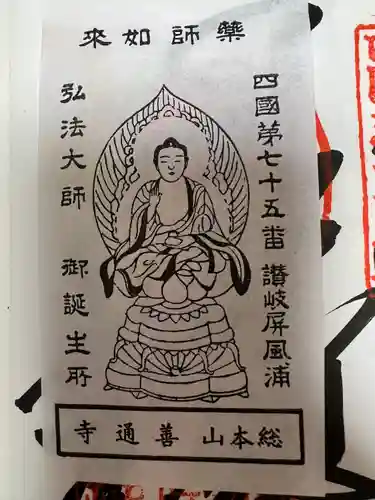 藥師如來
四國第七十五番 讃岐屏風浦
弘法大師 御誕生所
総本山善通寺